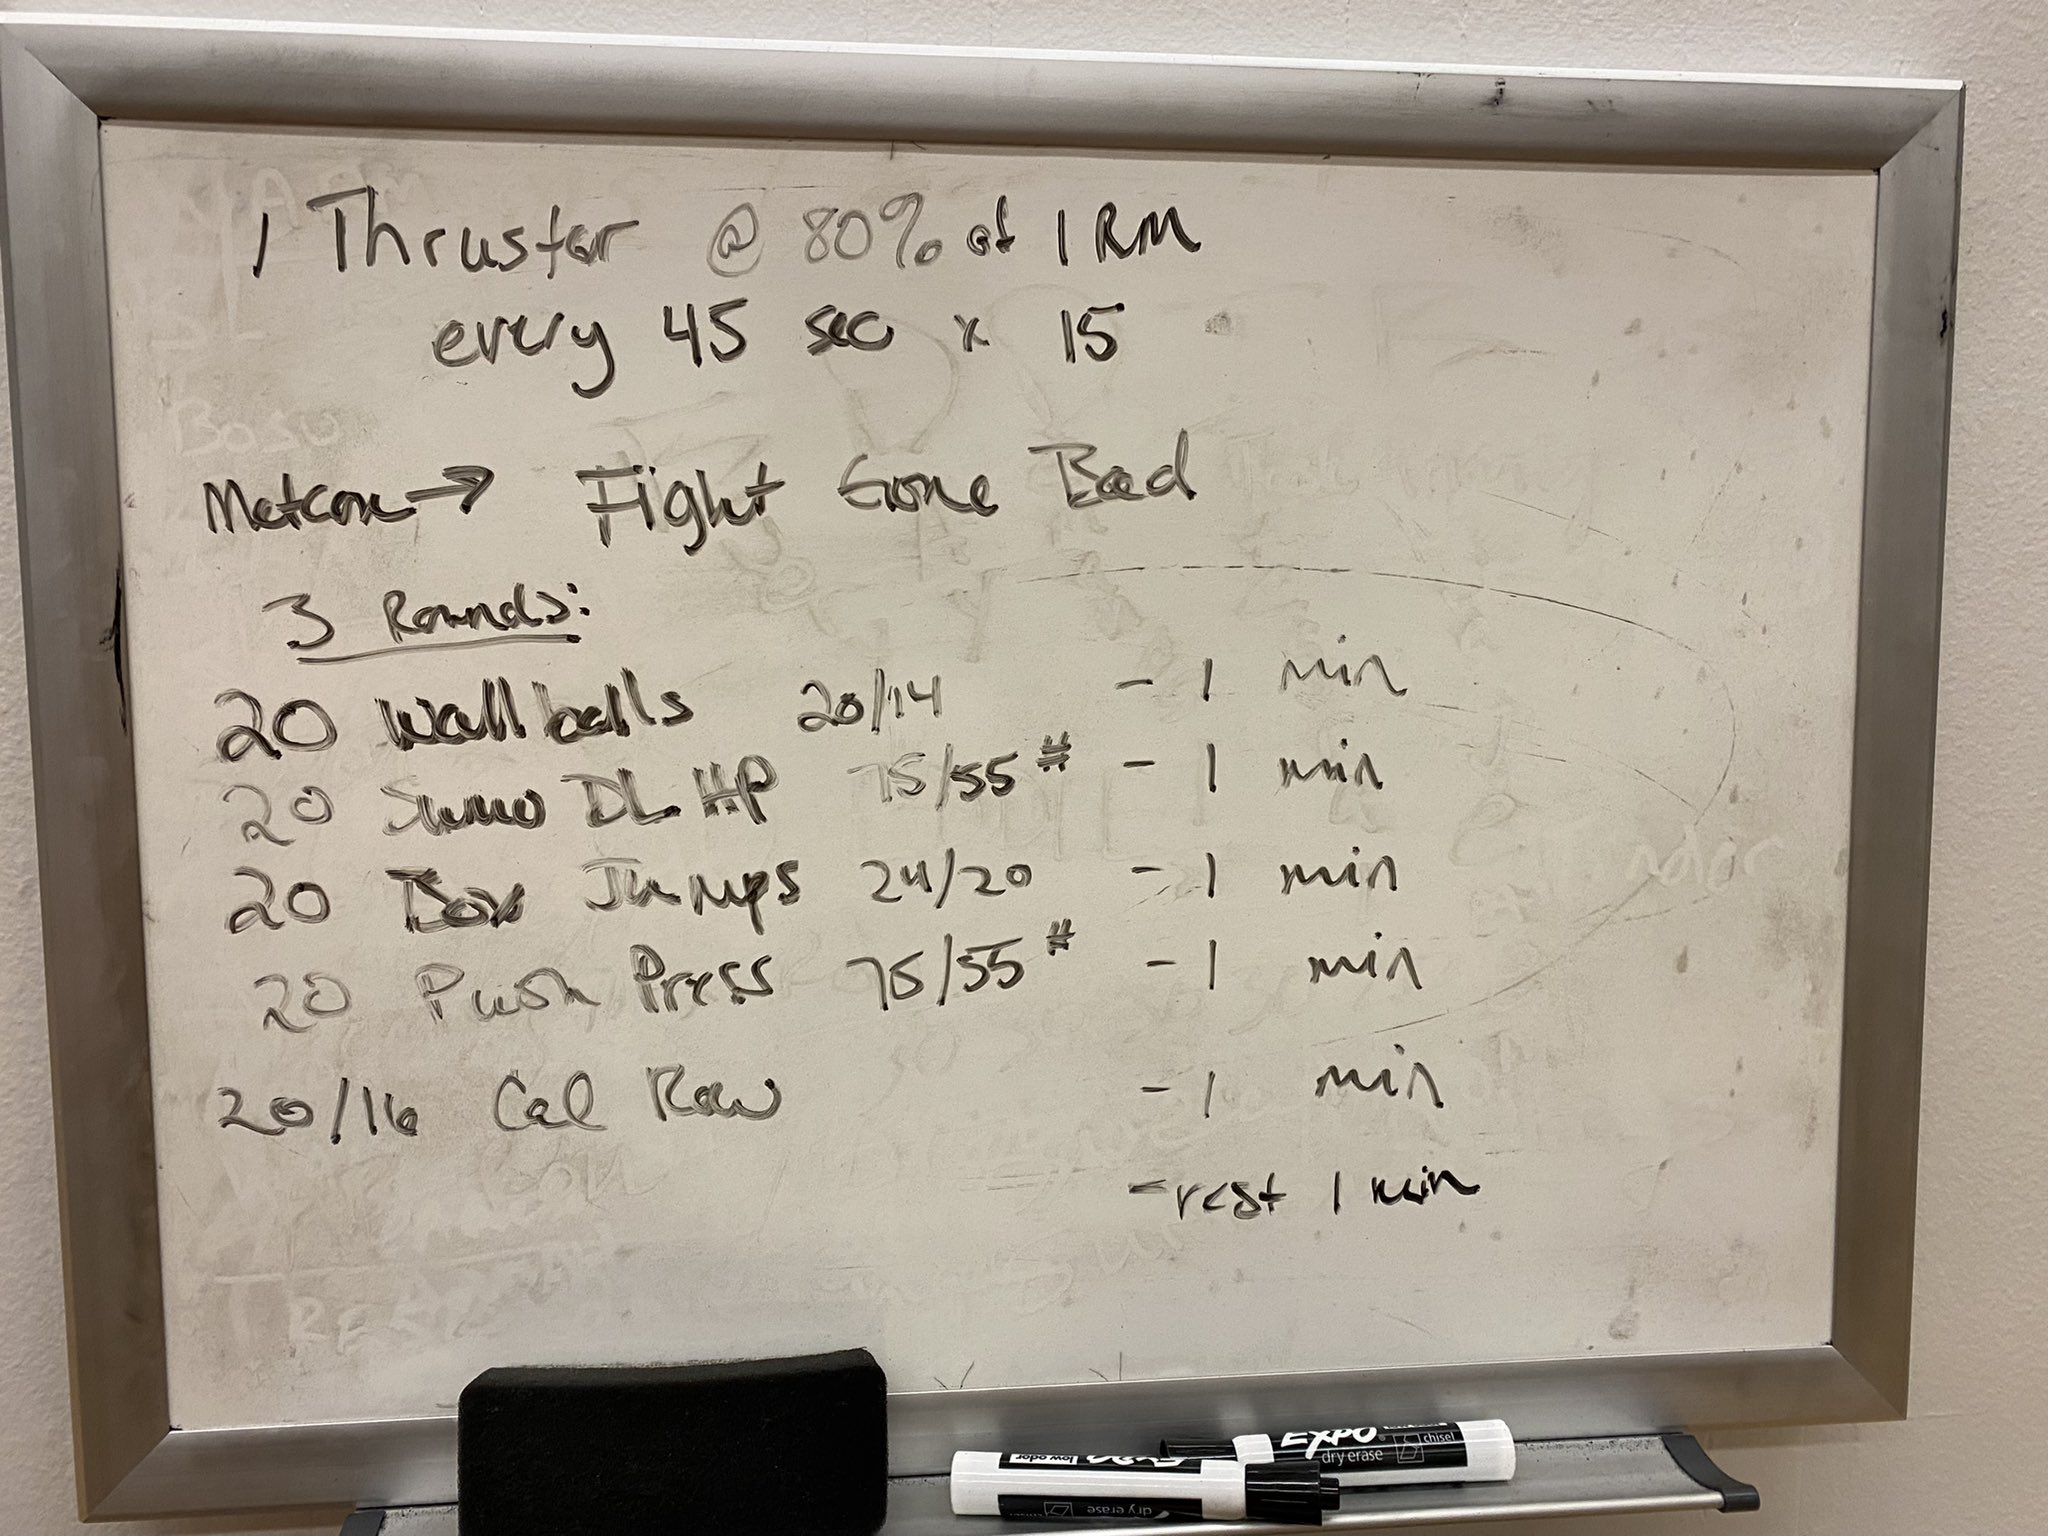 1 Thruster @ 80% of 1 RM
every 45 sec x 15
Metcon → Fight Gone Bad
3 Rounds:
20 Wall balls 20/14 - 1 min
20 Sumo DL HP 75/55# - 1 min
20 Box Jumps 24/20 - 1 min
20 Push Press 75/55# - 1 min
20/16 Cal Row - 1 min
- rest 1 min
EXPO
dry erase
chisel
low odor
EXPO
dry erase